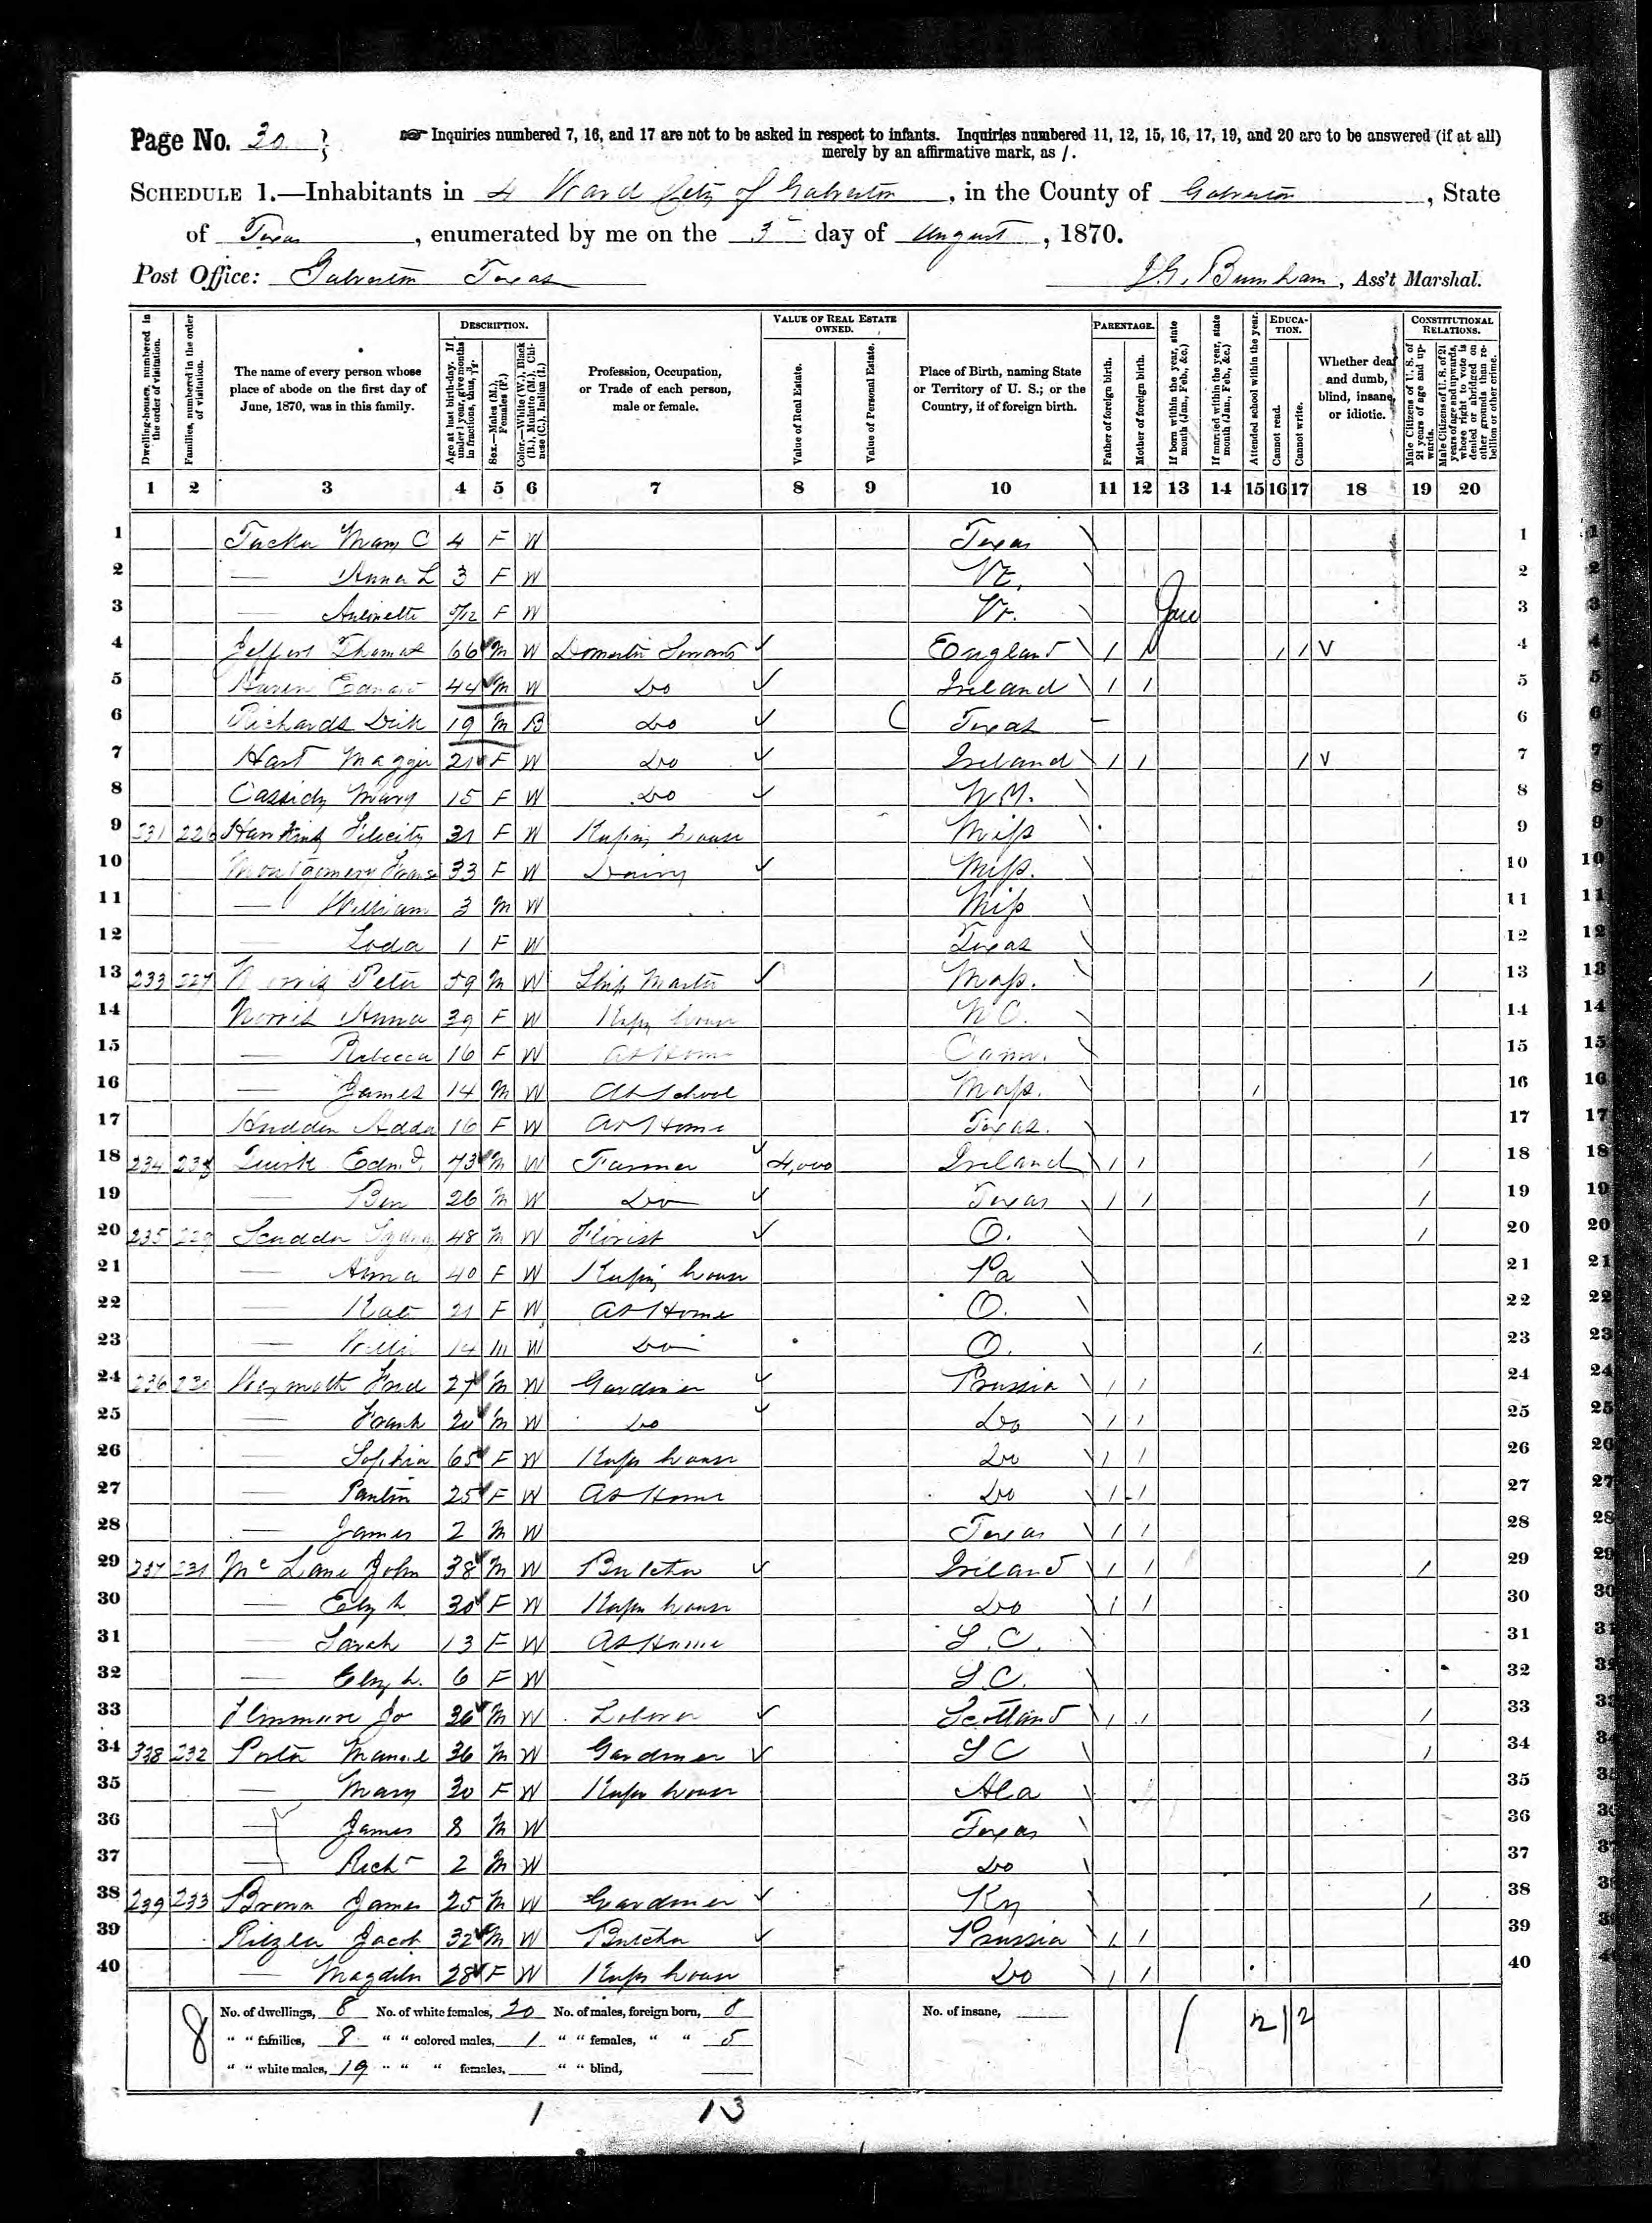 Page No. 30
Inquiries numbered 7, 16, and 17 are not to be asked in respect to infants. Inquiries numbered 11, 12, 15, 16, 17, 19, and 20 are to be answered (if at all)
merely by an affirmative mark, as /.
SCHEDULE 1.—Inhabitants in 4 Ward City of Galveston, in the County of Galveston, State
of Texas, enumerated by me on the 3 day of August, 1870.
Post Office: Galveston Texas J. G. Burnham, Ass't Marshal.
Dwelling-houses, numbered in the order of visitation.
Families, numbered in the order of visitation.
The name of every person whose place of abode on the first day of June, 1870, was in this family.
DESCRIPTION.
Age at last birth-day. If under 1 year, give months in fractions, thus, 3/12.
Sex.—Males (M.), Females (F.)
Color.—White (W.), Black (B.), Mulatto (M.), Chinese (C.), Indian (I.)
Profession, Occupation, or Trade of each person, male or female.
VALUE OF REAL ESTATE OWNED.
Value of Real Estate.
Value of Personal Estate.
Place of Birth, naming State or Territory of U. S.; or the Country, if of foreign birth.
PARENTAGE.
Father of foreign birth.
Mother of foreign birth.
If born within the year, state month (Jan., Feb., &c.)
If married within the year, state month (Jan., Feb., &c.)
Attended school within the year.
EDUCATION.
Cannot read.
Cannot write.
Whether deaf and dumb, blind, insane, or idiotic.
CONSTITUTIONAL RELATIONS.
Male Citizens of U. S. of 21 years of age and upwards.
Male Citizens of U. S. of 21 years of age and upwards, whose right to vote is denied or abridged on other grounds than rebellion or other crime.
1 2 3 4 5 6 7 8 9 10 11 12 13 14 15 16 17 18 19 20
1 Mary C 4 F W Texas 1
2 — Anna L 3 F W Vt. 2
3 — 5/12 F W Jan 3
4 Thomas 66 M W Domestic Servant England / / / / V 4
5 Edward 44 M W Do Ireland / / 5
6 Richards Dick 19 M B Do Texas 6
7 Hart Maggie 21 F W Do Ireland / / / V 7
8 Cassidy Mary 15 F W Do N.Y. 8
9 231 226 Felicity 31 F W Keeping house Miss 9
10 Montgomery 33 F W Dairy Miss. 10
11 — William 3 M W Miss 11
12 — Loda 1 F W Texas 12
13 233 227 Norris Peter 59 M W Ship Master Mass. / 13
14 Norris Anna 39 F W Keepg house N.C. 14
15 — Rebecca 16 F W At Home Conn. 15
16 — James 14 M W At School Mass. / 16
17 Adda 16 F W At Home Texas. 17
18 234 Quirk Edmd. 73 M W Farmer 4,000 Ireland / / / 18
19 — Ben 26 M W Do Texas / / / 19
20 235 229 Scudder 48 M W Florist O. / 20
21 — Anna 40 F W Keeping house Pa 21
22 — Kate 21 F W At Home O. 22
23 — Willie 14 M W Do O. / 23
24 236 230 Fred 27 M W Gardner Prussia / / 24
25 — Frank 20 M W Do Do / / 25
26 — Sophia 65 F W Keeps house Do / / 26
27 — 25 F W At Home Do / / 27
28 — James 2 M W Texas / / 28
29 237 231 McLane John 38 M W Butcher Ireland / / / 29
30 — Elizh 30 F W Keeps house Do / / 30
31 — Sarah 13 F W At Home S.C. 31
32 — Elizh. 6 F W S.C. 32
33 Jo 36 M W Laborer Scotland / / / 33
34 338 232 Porter 36 M W Gardner S C / 34
35 — Mary 30 F W Keeps house Ala 35
36 — James 8 M W Texas 36
37 — Richd 2 M W Do 37
38 239 233 Brown James 25 M W Gardner Ky / 38
39 Jacob 32 M W Butcher Prussia / / 39
40 — 28 F W Keeps house Do / / 40
8 No. of dwellings, 8 No. of white females, 20 No. of males, foreign born, 8 No. of insane, 1 2 2
" " families, 8 " " colored males, 1 " " females, " " 5
" " white males, 19 " " " females, " " blind,
1 13